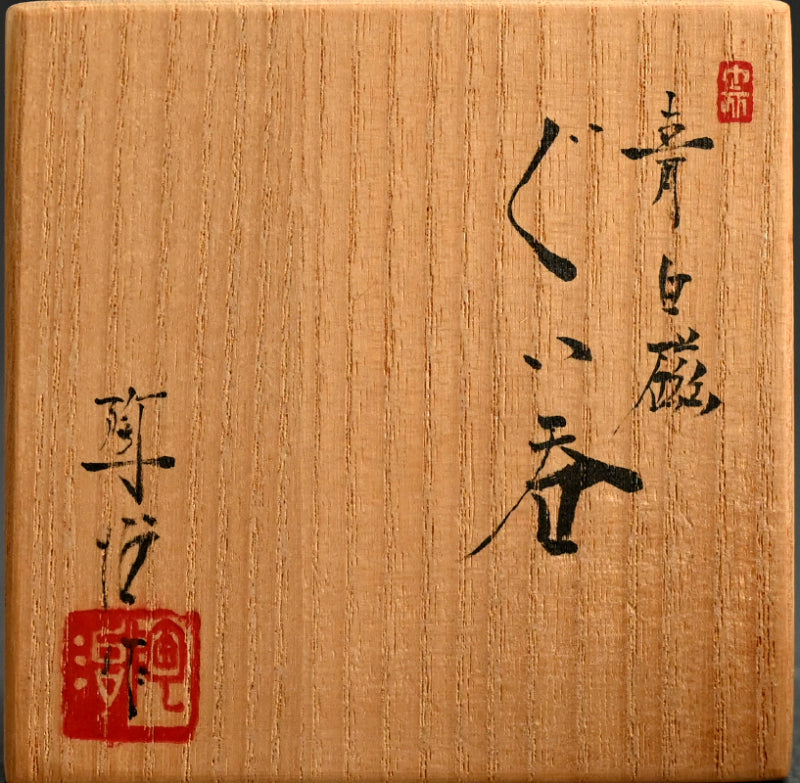 青白磁
ぐい呑
作